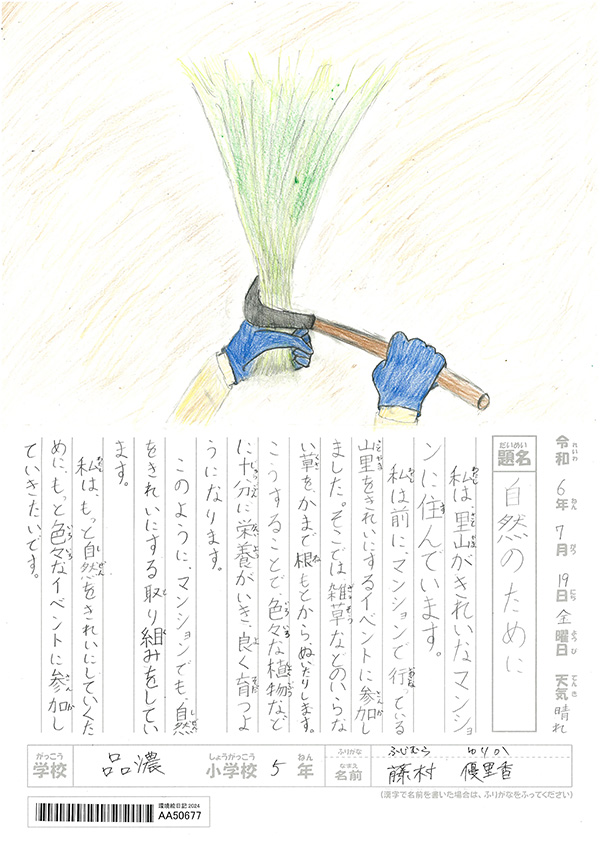 令和 れいわ 6年 ねん 7月 がつ 19日 にち 金曜日 ようび 天気 てんき 晴れ
題名 だいめい 自然のために
私は、里山がきれいなマンショ
ンに住んでいます。
私は前に、マンションで行っている
山里をきれいにするイベントに参加し
ました。そこでは、雑草などのいらな
い草を、かまで根もとから、ぬいたりします。
こうすることで、色々な植物など
に十分に栄養がいき、良く育つよ
うになります。
このように、マンションでも、自然
をきれいにする取り組みをしてい
ます。
私は、もっと自然をきれいにしていくた
めに、もっと色々なイベントに参加し
ていきたいです。
学校 がっこう 品濃 小学校 しょうがっこう 5年 ねん
ふりがな ふじむら ゆりか
名前 なまえ 藤村 優里香
(漢字で名前を書いた場合は、ふりがなをふってください)
環境絵日記2024
AA50677